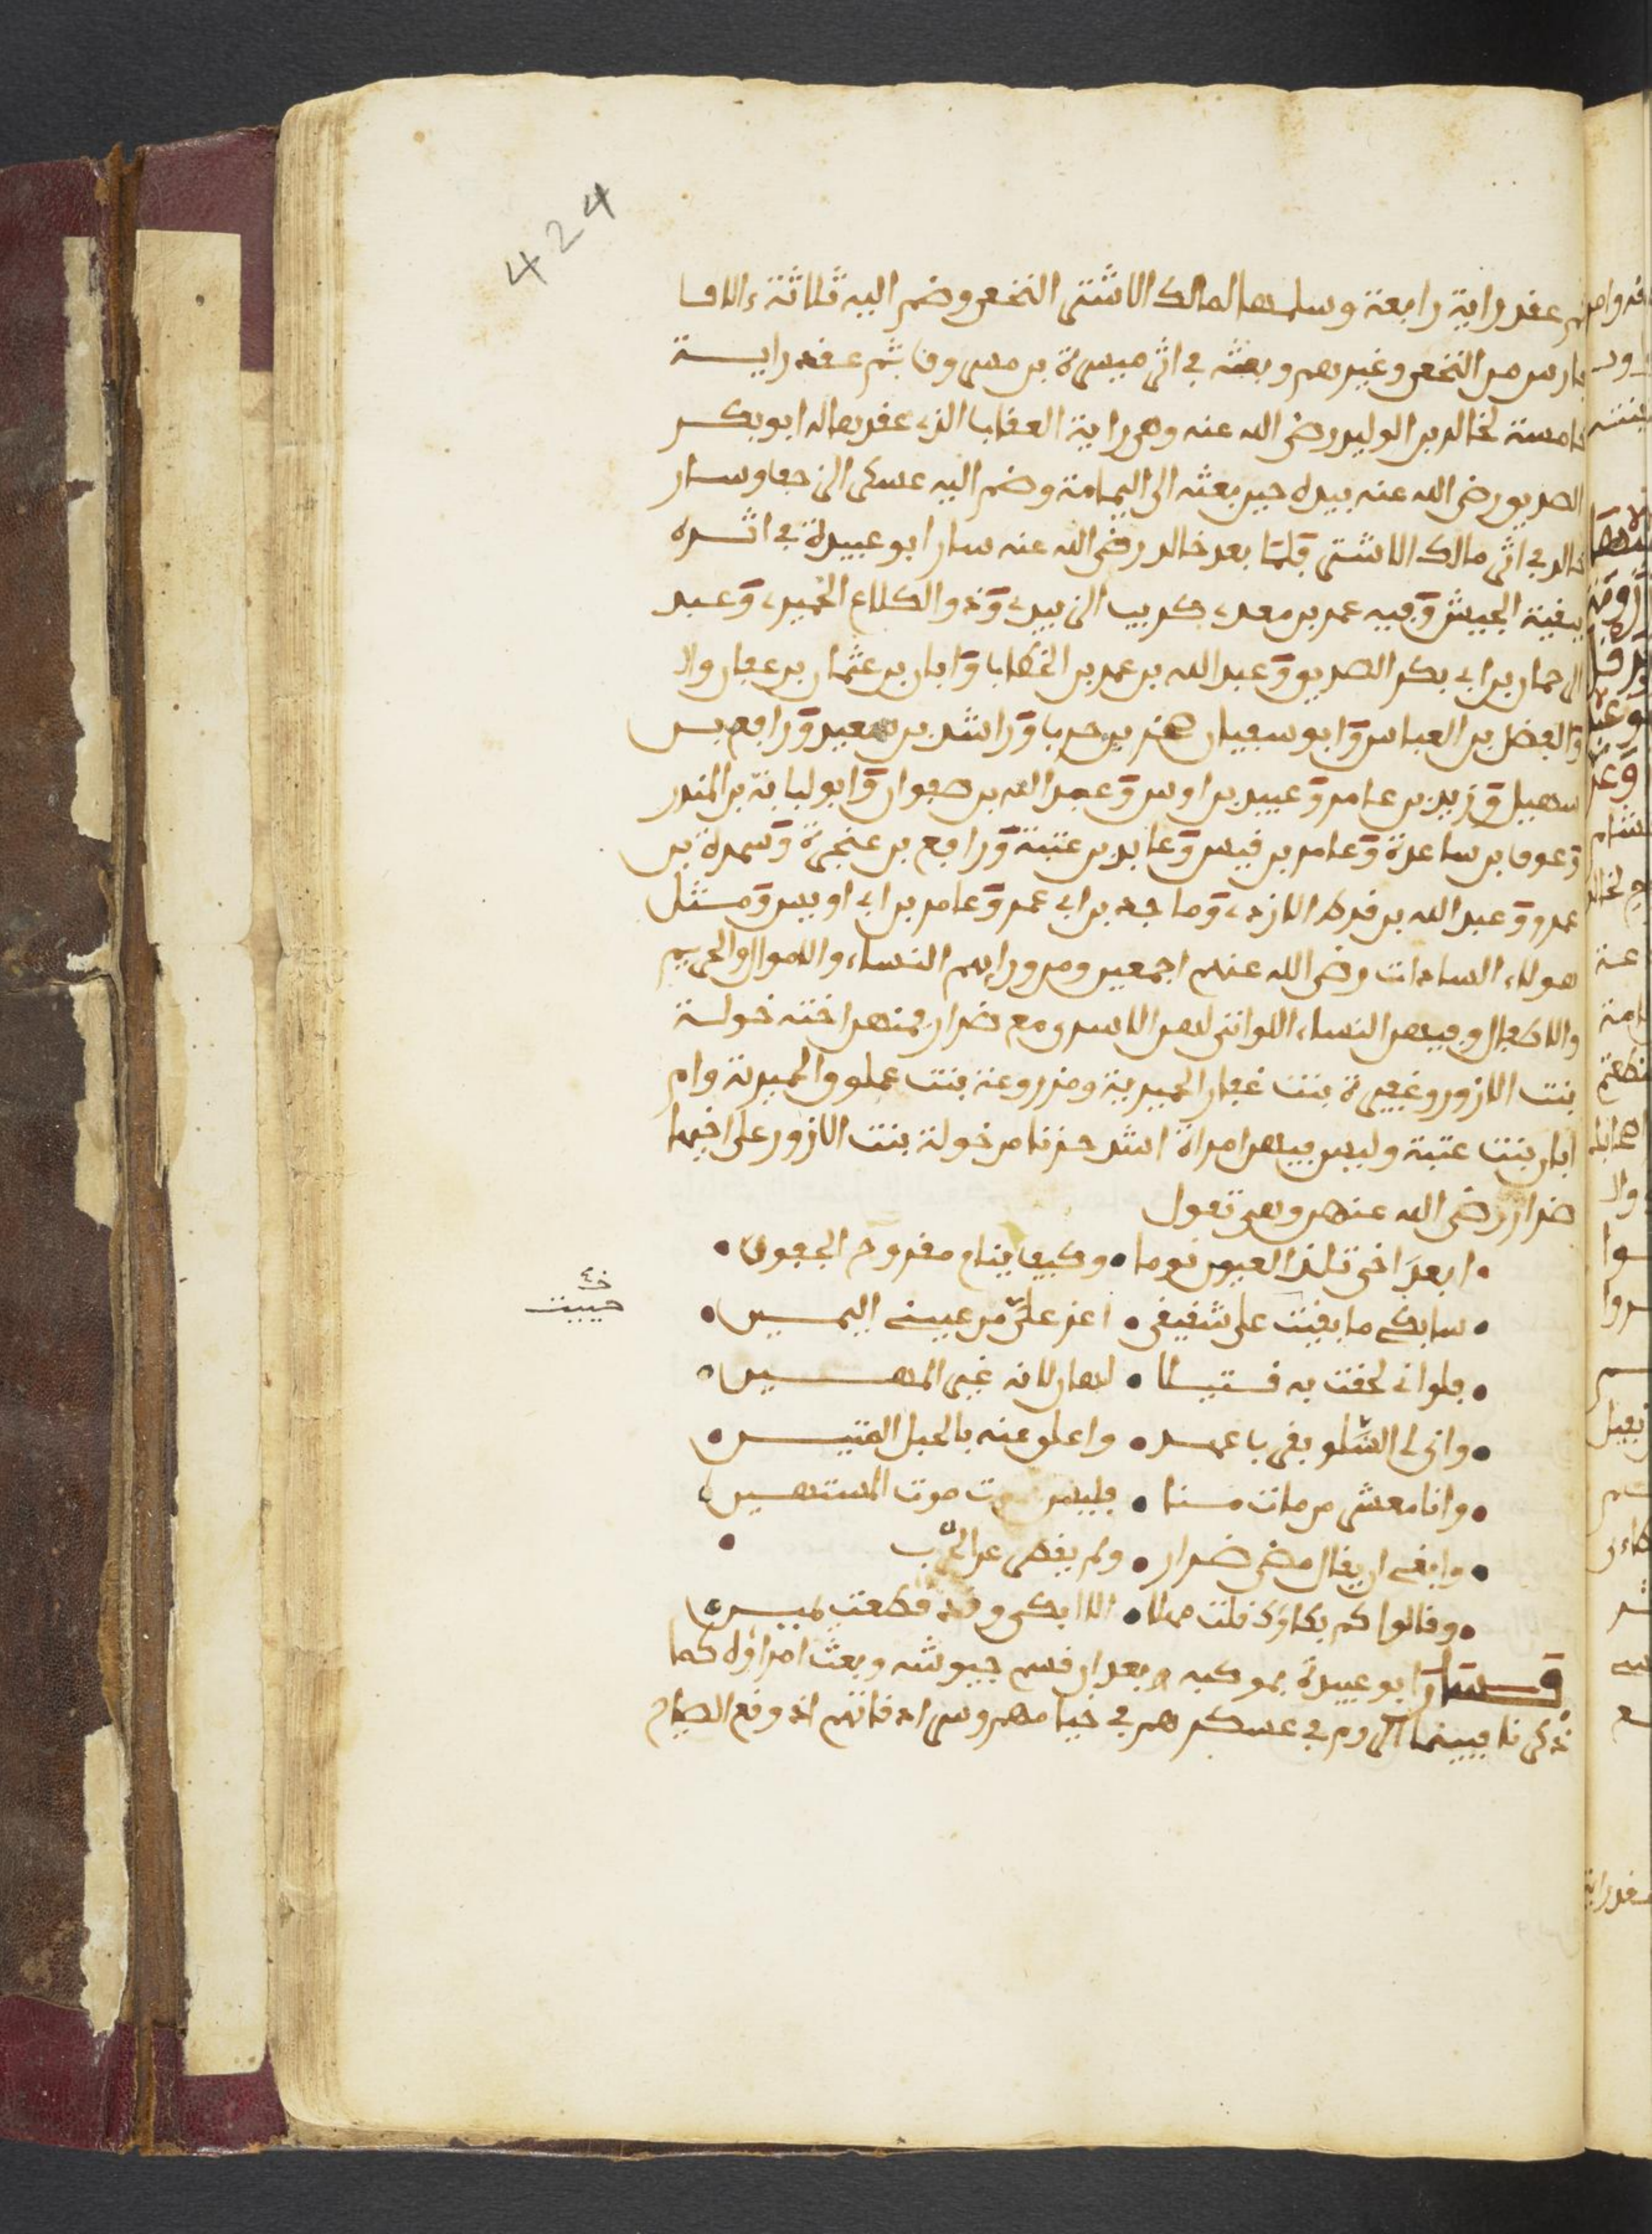 424
ثم عقد راية رابعة وسلمها لمالك الاشتر النخعي وضم اليه ثلاثة ءالاف
فارس من النخع وغيرهم وبعثه في اثر ميسرة بن مسروق ثم عقد رايـــة
خامسة لخالد بن الوليد رضي الله عنه وهي راية العقاب الذي عقدها له ابو بكـر
الصديق رضي الله عنه بيده حين بعثه الى اليمامة وضم اليه عسكر الزحف وسـار
خالد في اثر مالك الاشتر فلما بعد خالد رضي الله عنه سار ابو عبيدة في اثـره
ببقية الجيش وفيه عمر بن معدي كريب الزبيدي وذو الكلاع الحميري وعبد
الرحمان بن ابي بكر الصديق وعبد الله بن عمر بن الخطاب وابان بن عثمان بن عفان والا
والفضل بن العباس وابو سفيان صخر بن حرب وراشد بن سعيد ورافع بـن
سهيل وزيد بن عامر وعبيد بن اوس وعبد الله بن صفوان وابو لبابة بن المنذر
وعوف بن ساعدة وعامر بن قيس وعابد بن عتبة ورافع بن عنجرة وسمرة بن
عمرو وعبد الله بن قرط الازدي وماجد بن ابي عمر وعامر بن ابي اويس ومـثـل
هولاء السادات رضي الله عنهم اجمعين ومن ورايهم النساء والاموال والحريم
والاطفال وفيهن النساء اللواتي لهن الاسرى مع ضرار فمنهن اخته خولـة
بنت الازور وغفيرة بنت غفار الحميرية ومزروعة بنت عملوق الحميرية وام
ابان بنت عتبة وليس فيهن امراة اشد حزنا من خولة بنت الازور على اخيها
ضرار رضي الله عنهن وهي تقول
• ابعد اخي تلذ العيون نوما • وكيف ينام مقروح الجفون •
• سابكي ما بقيت على شقيقي • اعز علي من عيني اليمـيـن •
خ حييت
• فلو اني لحقت به قـتـيـلا • لهان لانه غير المهـــيـن •
• واني لي السلو بقى يا عمـر • واعلق عنه بالحبل المتيـــن •
• وانا معشر من مات مـنـا • فليس موت موت المستهـيـن
• وابغي ان يقال مضى ضـرار • ولم يقض عن الحرب •
• وقالوا كم بكاؤك قلت مهلا • الا ابكي وقد قطعت يميـنـي •
فـسـار ابو عبيدة بموكبه وبعد ان قسم جيوشه وبعث امراؤه كما
ذكرنا فبينما الروم في عسكرهم في خيامهم وسرادقاتهم اذ وقع الصياح